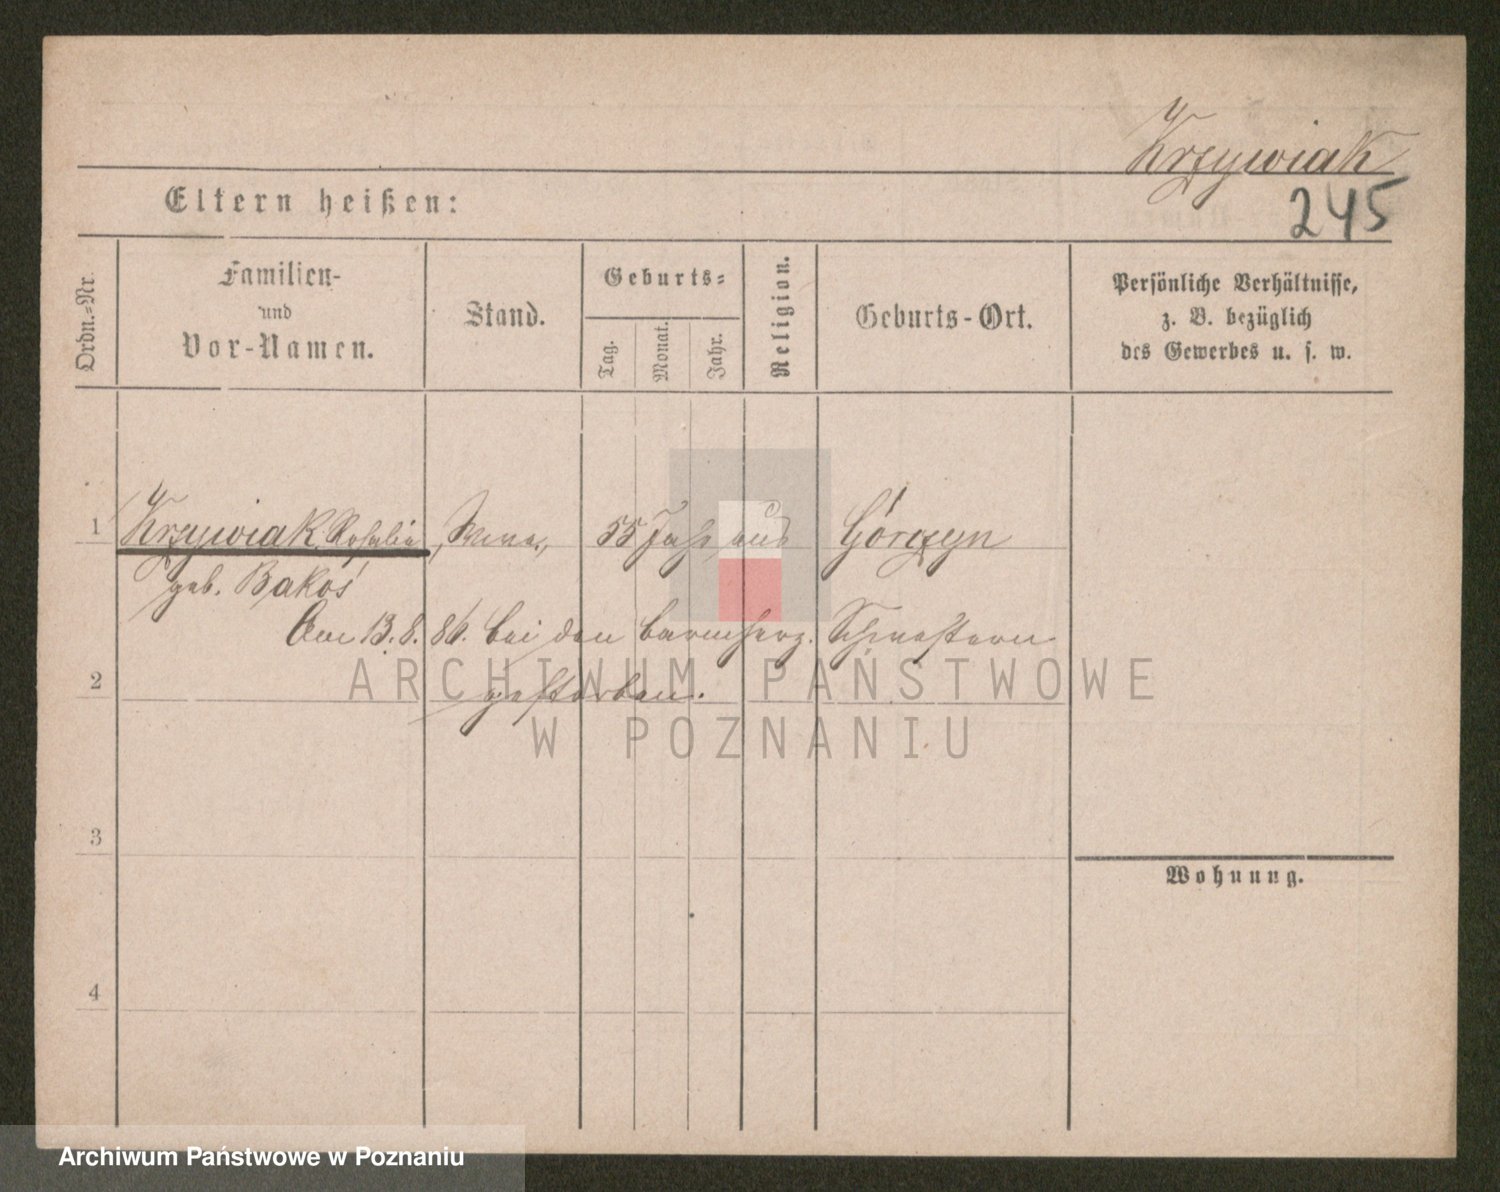 Krzywiak
245
Eltern heißen:
Ordn.-Nr.
Familien-
und
Vor-Namen.
Stand.
Geburts-
Tag.
Monat.
Jahr.
Religion.
Geburts-Ort.
Persönliche Verhältnisse,
z. B. bezüglich
des Gewerbes u. s. w.
1 Krzywiak Rosalie, Wwe., 55 Jahr aus Górczyn
geb. Bakoś
Am 13. 8. 86. bei den barmherz. Schwestern
2 gestorben.
ARCHIWUM PAŃSTWOWE
W POZNANIU
3
Wohnung.
4
Archiwum Państwowe w Poznaniu